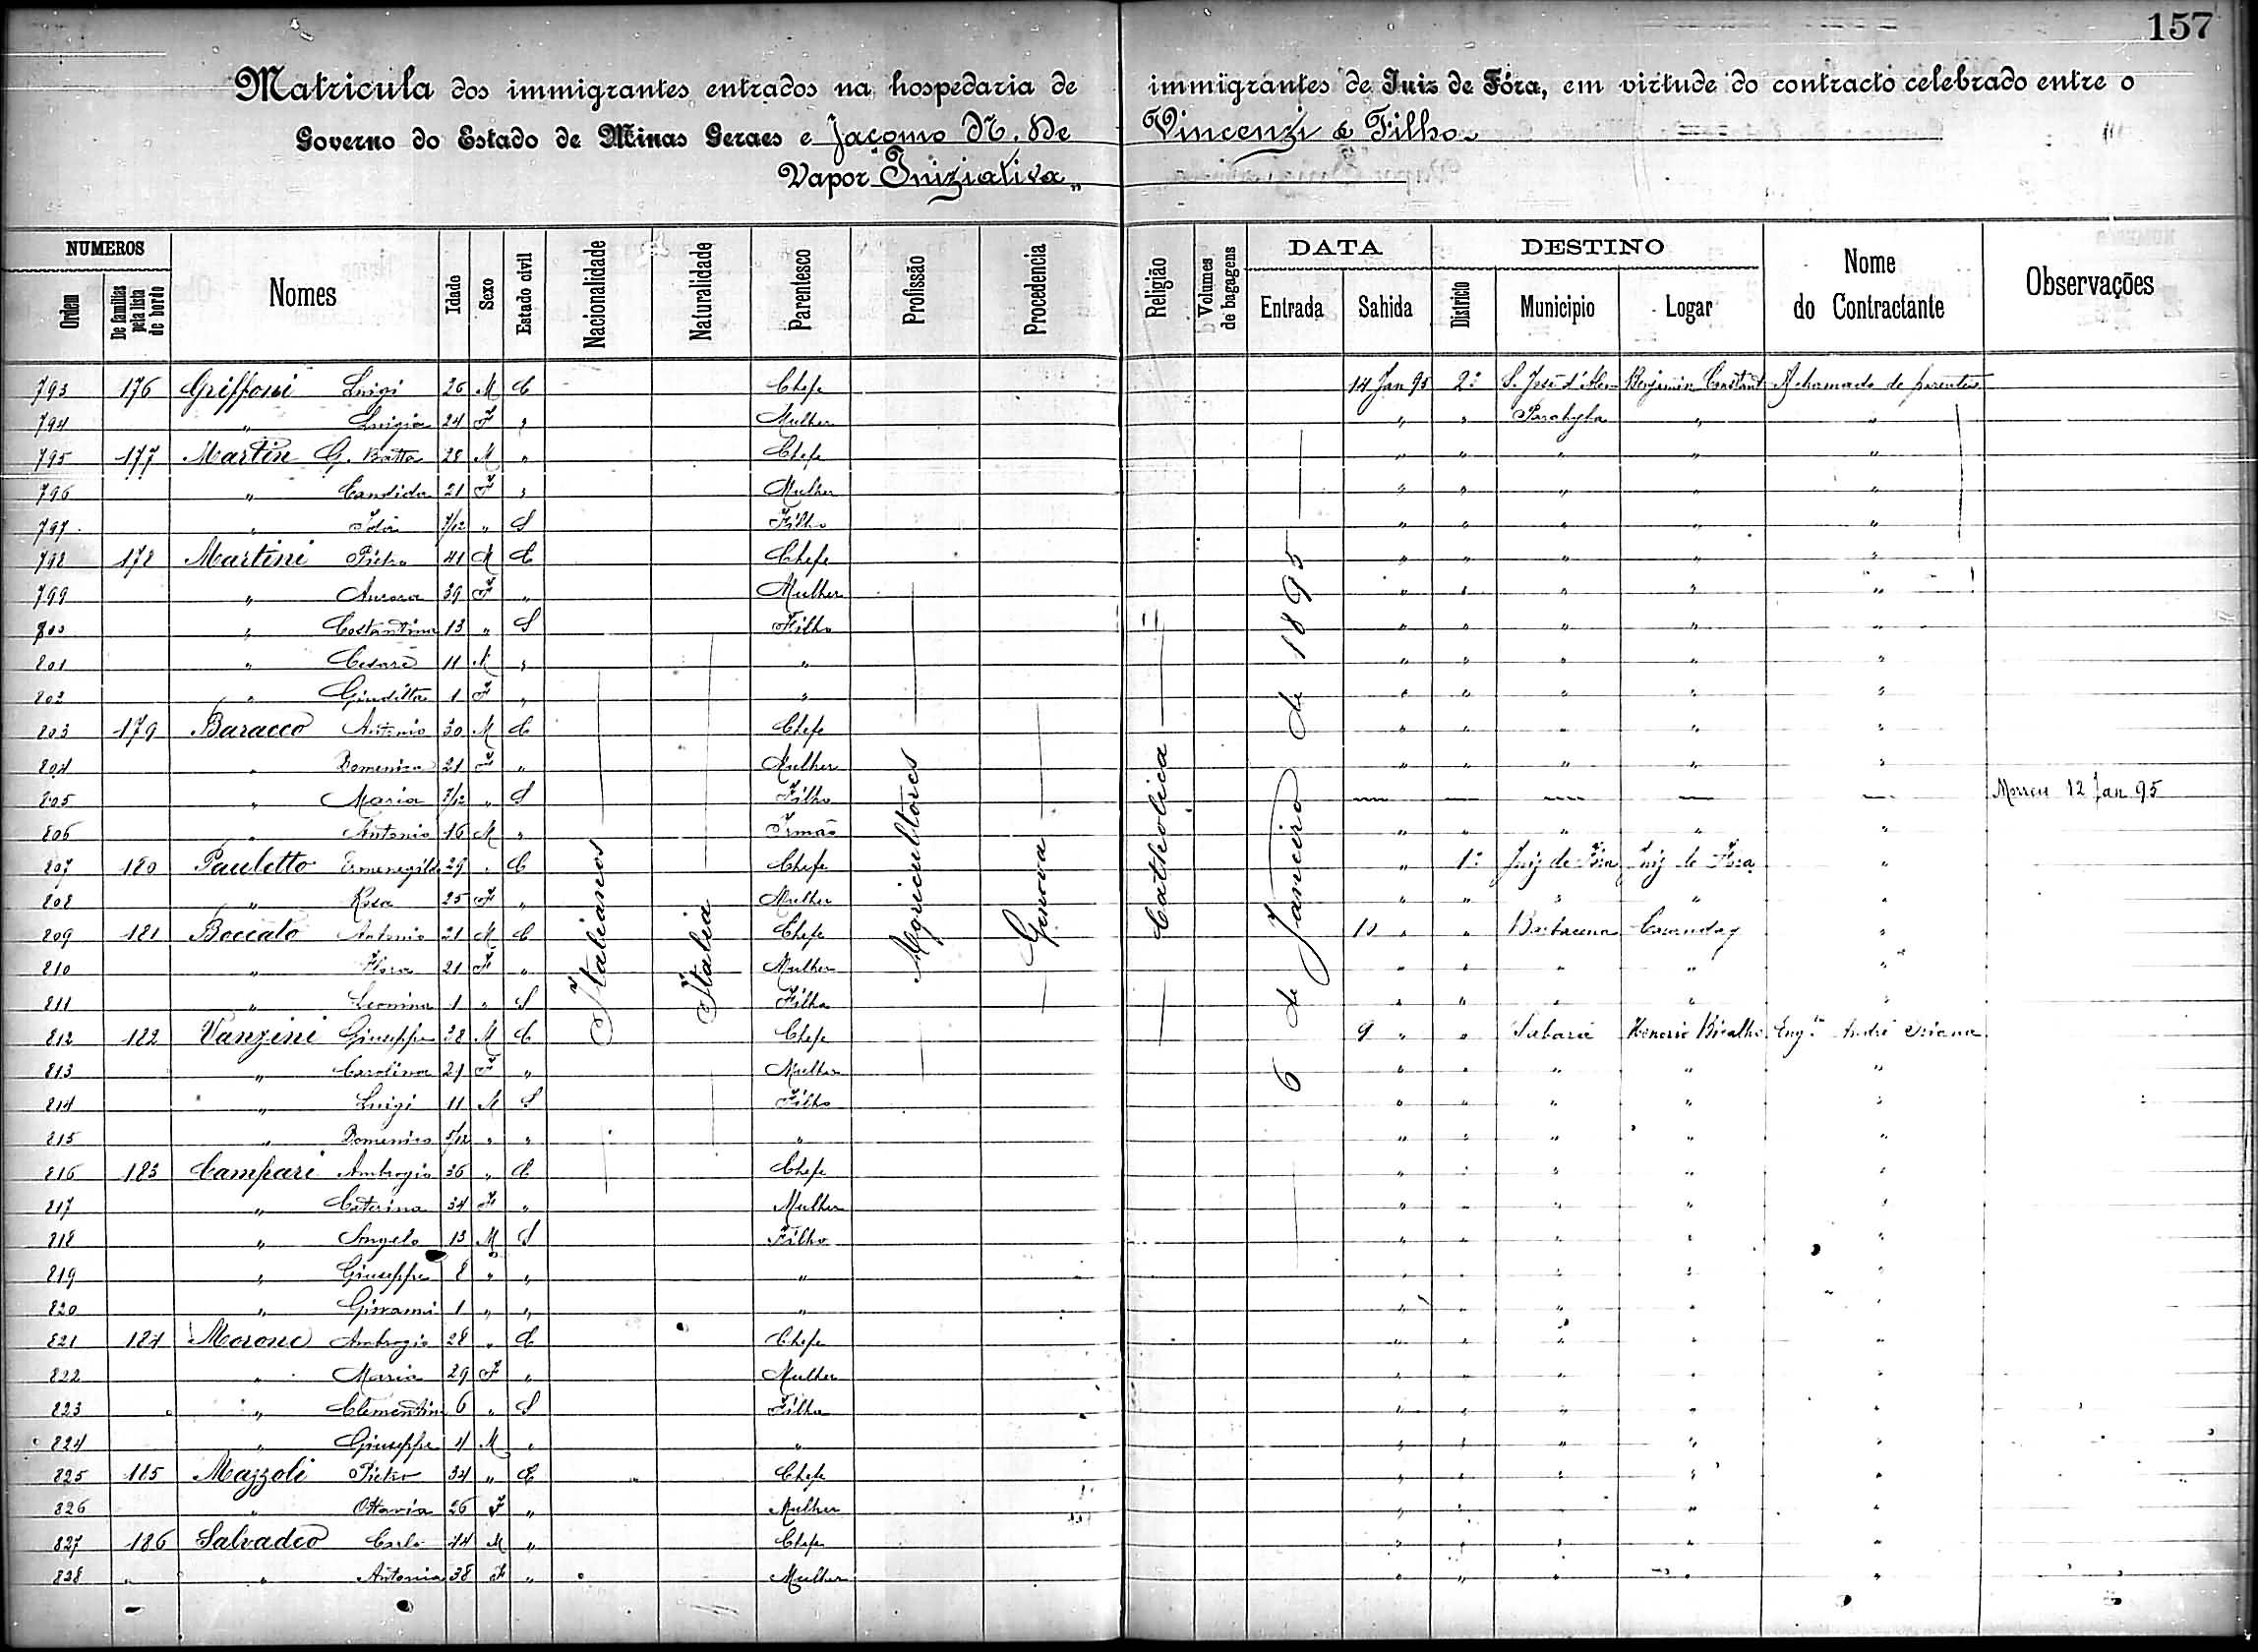 157
Matricula dos immigrantes entrados na hospedaria de immigrantes de Juiz de Fóra, em virtude do contracto celebrado entre o
Governo do Estado de Minas Geraes e Jacomo N. de Vincenzi & Filho.
Vapor Iniziativa
NUMEROS DATA DESTINO
Ordem De familias pela lista de bordo Nomes Idade Sexo Estado civil Nacionalidade Naturalidade Parentesco Profissão Procedencia Religião Volumes de bagagens Entrada Sahida Districto Municipio Logar Nome do Contractante Observações
Italianos Italia Agricultores Genova Catholica 6 de Janeiro de 1895
793 176 Griffoni Luigi 26 M C Chefe 14 Jan 95 2º S. José d'Alem Benjamin Constant A chamado de parentes
794 " Luigia 24 F " Mulher " " Parahyba " "
795 177 Martin G. Batta 28 M " Chefe " " " " "
796 " Candida 21 F " Mulher " " " " "
797 " Ida 7/12 " S Filho " " " " "
798 178 Martini Pietro 41 M C Chefe " " " " "
799 " Aurora 39 F " Mulher " " " " "
800 " Costantina 13 " S Filho " " " " "
801 " Cesare 11 M " " " " " " "
802 " Giuditta 1 F " " " " " " "
803 179 Baracco Antonio 30 M C Chefe " " " " "
804 " Domenica 21 F " Mulher " " " " "
805 " Maria 7/12 " S Filho — — — — — Morreu 12 Jan 95
806 " Antonio 16 M " Irmão " " " " "
807 180 Pauletto Ermenegildo 29 " C Chefe " 1º Juiz de Fóra Juiz de Fora "
808 " Rosa 25 F " Mulher " " " " "
809 181 Boccato Antonio 21 M C Chefe 10 " " Barbacena "
810 " Flora 21 F " Mulher " " " " "
811 " Leonina 1 " S Filha " " " " "
812 182 Vanzini Giuseppe 38 M C Chefe 9 " " Sabará Honorio Bicalho Engº André
813 " Carolina 21 F " Mulher " " " " "
814 " Luigi 11 M S Filho " " " " "
815 " Domenico 5/12 " " " " " " " "
816 183 Campari Ambrogio 36 " C Chefe " " " " "
817 " Caterina 34 F " Mulher " " " " "
818 " Angelo 13 M S Filho " " " " "
819 " Giuseppe 8 " " " " " " " "
820 " Giovanni 1 " " " " " " " "
821 184 Morone Ambrogio 28 " C Chefe " " " " "
822 " Maria 29 F " Mulher " " " " "
823 " Clementina 6 " S Filha " " " " "
824 " Giuseppe 4 M " " " " " " "
825 185 Mazzoli Pietro 34 " C Chefe " " " " "
826 " Ottavia 26 F " Mulher " " " " "
827 186 Salvadeo Carlo 44 M " Chefe " " " " "
828 " " Antonia 38 F " Mulher " " " " "